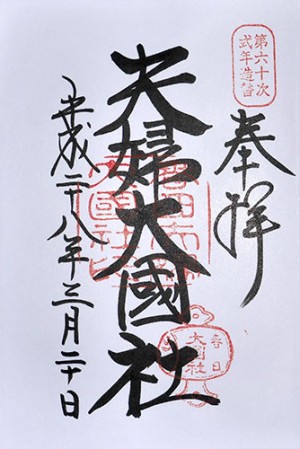 第六十次
式年造替
奉拝
夫婦大國社
春日
大國社
平成二十八年三月二十日